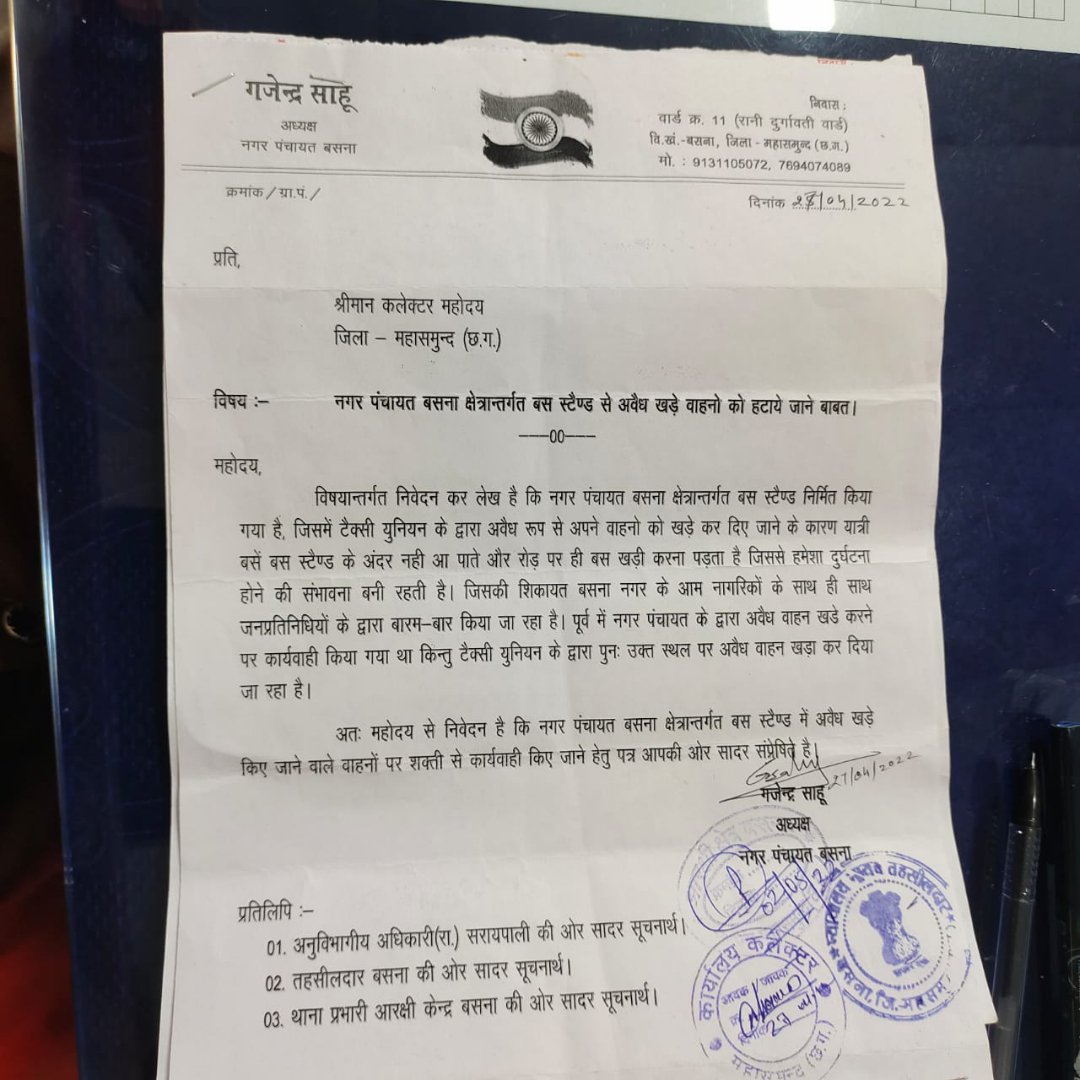 गजेन्द्र साहू
अध्यक्ष
नगर पंचायत बसना
निवास :
वार्ड क्र. 11 (रानी दुर्गावती वार्ड)
वि.खं.-बसना, जिला - महासमुन्द (छ.ग.)
मो. : 9131105072, 7694074089
क्रमांक / ग्रा.पं. /
दिनांक 27/04/2022
प्रति,
श्रीमान कलेक्टर महोदय
जिला – महासमुन्द (छ.ग.)
विषय :– नगर पंचायत बसना क्षेत्रान्तर्गत बस स्टैण्ड से अवैध खड़े वाहनो को हटाये जाने बाबत।
---00---
महोदय,
विषयान्तर्गत निवेदन कर लेख है कि नगर पंचायत बसना क्षेत्रान्तर्गत बस स्टैण्ड निर्मित किया
गया है, जिसमें टैक्सी युनियन के द्वारा अवैध रूप से अपने वाहनो को खड़े कर दिए जाने के कारण यात्री
बसें बस स्टैण्ड के अंदर नही आ पाते और रोड़ पर ही बस खड़ी करना पड़ता है जिससे हमेशा दुर्घटना
होने की संभावना बनी रहती है। जिसकी शिकायत बसना नगर के आम नागरिकों के साथ ही साथ
जनप्रतिनिधियों के द्वारा बारम–बार किया जा रहा है। पूर्व में नगर पंचायत के द्वारा अवैध वाहन खडे करने
पर कार्यवाही किया गया था किन्तु टैक्सी युनियन के द्वारा पुनः उक्त स्थल पर अवैध वाहन खड़ा कर दिया
जा रहा है।
अतः महोदय से निवेदन है कि नगर पंचायत बसना क्षेत्रान्तर्गत बस स्टैण्ड में अवैध खड़े
किए जाने वाले वाहनों पर शक्ती से कार्यवाही किए जाने हेतु पत्र आपकी ओर सादर संप्रेषित है।
27/04/2022
गजेन्द्र साहू
अध्यक्ष
नगर पंचायत बसना
प्रतिलिपि :–
01. अनुविभागीय अधिकारी(रा.) सरायपाली की ओर सादर सूचनार्थ।
02. तहसीलदार बसना की ओर सादर सूचनार्थ।
03. थाना प्रभारी आरक्षी केन्द्र बसना की ओर सादर सूचनार्थ।
कार्यालय कलेक्टर
आवक / जावक
महासमुन्द (छ.ग.)
न्यायालय नायब तहसीलदार
बसना, जि.-महासमु